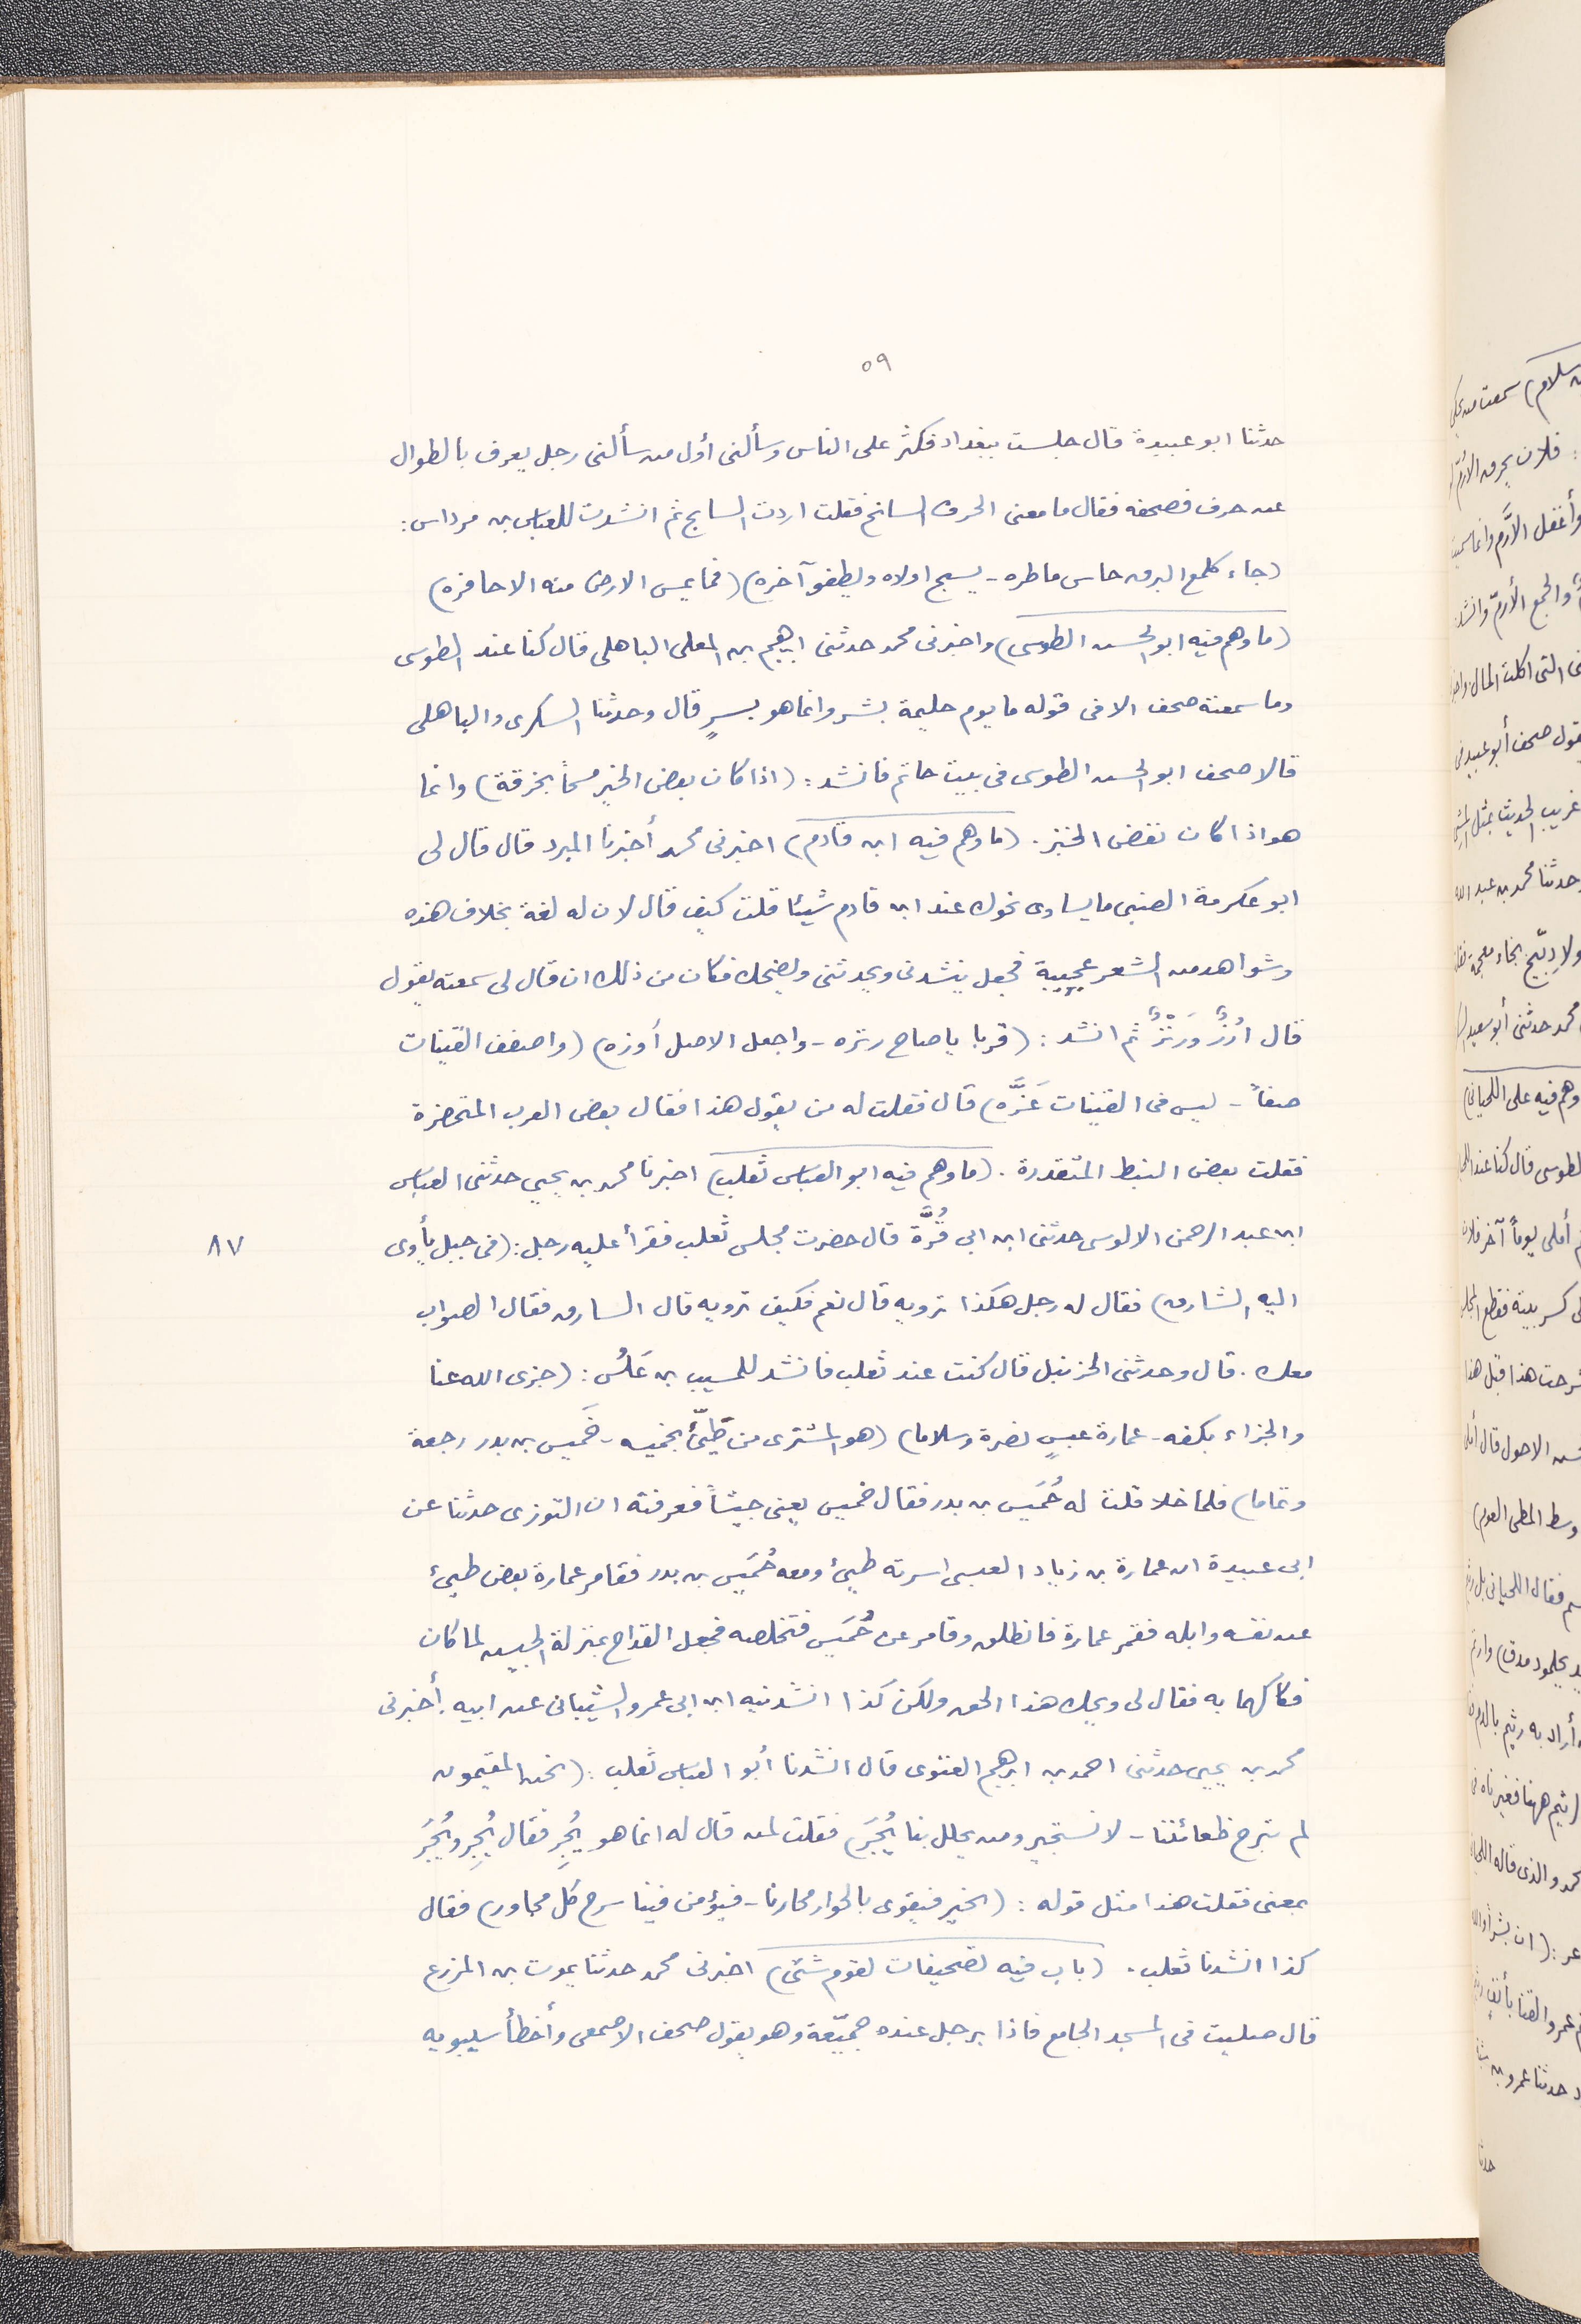 ٥٩
حدثنا ابو عبيدة قال جلست ببغداد فكثر على الناس وسألنى أول من سألنى رجل يعرف بالطوال
عن حرف فصحفه فقال ما معنى الحرف السانح فقلت اردت السابح ثم انشدت للعباس بن مرداس:
(جاء كلمع البرق جاس ماطره - يسبح اولاه ويطفو آخره) (فما يمس الارض منه الا حافره)
(ما وهم فيه ابو الحسن الطوسى) واخبرنى محمد حدثنى ابرهيم بن المعلى الباهلى قال كنا عند الطوسى
وما سمعته صحف الا فى قوله ما يوم حليمة بشر وانما هو بسرٍ قال وحدثنا السكرى والباهلى
قالا صحف ابو الحسن الطوسى فى بيت حاتم فانشد: (اذا كان بعض الخير مسحاً بخرقة) وانما
هو اذا كان نفض الخبز. (ما وهم فيه ابن قادم) اخبرنى محمد أخبرنا المبرد قال قال لى
ابو عكرمة الضبى ما يساوى نحوك عند ابن قادم شيئا قلت كيف قال لان له لغة بخلاف هذه
وشواهد من الشعر عجيبة فجعل ينشدنى ويحدثنى ويضحك فكان من ذلك ان قال لى سمعته يقول
قال ارُزٌّ وَرَنْزٌ ثم انشد: (قربا يا صاح رنزه - واجعل الاصل أوزه) (واصفف القينات
صفاً - ليس فى القينات عَزَّه) قال فقلت له من يقول هذا فقال بعض العرب المتحضرة
فقلت بعض النبط المتقدرة. (ما وهم فيه ابو العباس ثعلب) اخبرنا محمد بن يحيى حدثنى العباس
ابن عبد الرحمن الالوسى حدثنى ابن ابى قُرَّة قال حضرت مجلس ثعلب فقرأ عليه رجل: (فى جبل يأوى
٨٧
اليه الشارق) فقال له رجل هكذا ترويه قال نعم فكيف ترويه قال السارق فقال الصواب
معك. قال وحدثنى الحزنبل قال كنت عند ثعلب فانشد للمسيب بن عَلَسُ: (جزى الله عنا
والجزاء بكفه - عمارة عبسٍ نضرة وسلاما) (هو المشترى من طَيّئ بخميسه - خَميس بن بدر رجعة
وتماما) فلما خلا قلت له خُمَيس بن بدر فقال خميس يعنى جيشاً فعرفته ان التوزى حدثنا عن
ابى عبيدة ان عمارة بن زياد العبسى اسرته طيئ ومعه خُمَيس بن بدر فقامر عمارة بعض طيئ
عن نفسه وابله فقمر عمارة فانطلق وقامر عن خُمَيس فتخلصه فجعل القداح بمنزلة الجيش لما كان
فكاكهما به فقال لى ويحك هذا الحق ولكن كذا انشدنيه ابن ابى عمرو الشيبانى عن ابيه. أخبرنى
محمد بن يحيى حدثنى احمد بن ابرهيم الغنوى قال انشدنا أبو العباس ثعلب: (نحن المقيمون
لم تبرح ظعائننا - لا نستجير ومن يحلل بنا يُجَرَ) فقلت لمن قال له انما هو يُجِرِ فقال يُجِرِ ويُجَرَ
بمعنى فقلت هذا مثل قوله: (الخير فيقوى بالحوار محارنا - فيؤمن فينا سرح كل مجاور) فقال
كذا انشدنا ثعلب. (باب فيه تصحيفات لقوم شتى) اخبرنى محمد حدثنا يموت بن المزرع
قال صليت فى المسجد الجامع فاذا برجل عنده جميّعة وهو يقول صحف الاصمعى وأخطأ سيبويه